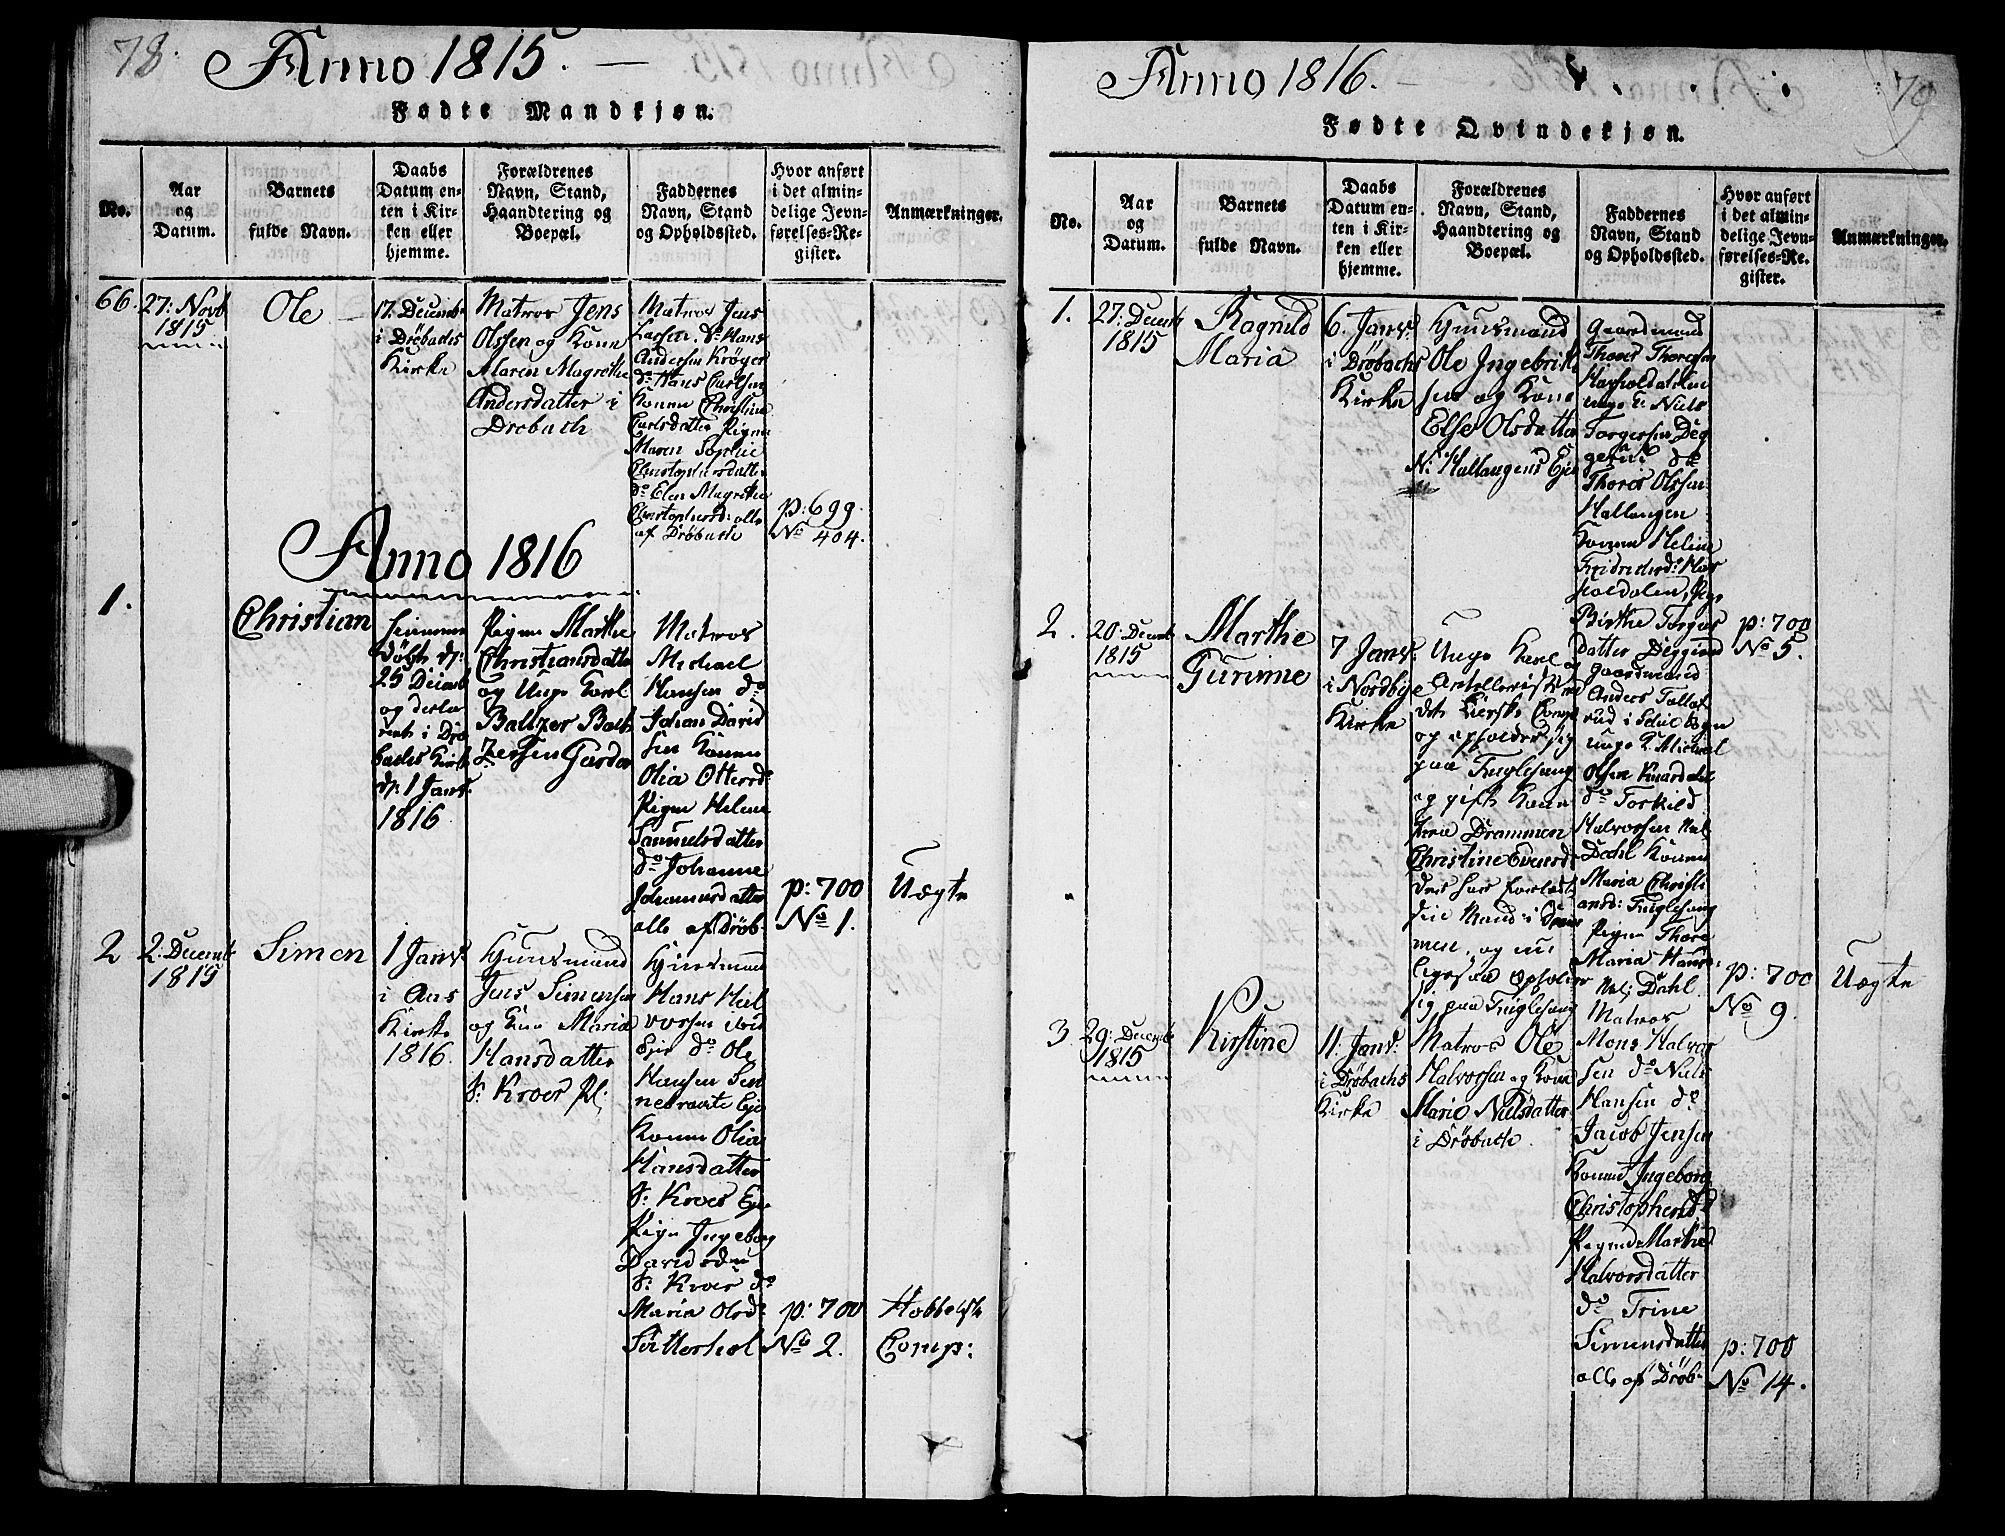 78.
Anno 1815. —
Fødte Mandkjøn.
No.
Aar
og
Datum.
Barnets
fulde Navn.
Daabs
Datum en-
ten i Kir-
ken eller
hjemme.
Forældrenes
Navn, Stand,
Haandtering og
Boepæl.
Faddernes
Navn, Stand
og Opholdssted.
Hvor anført
i det almin-
delige Jevn-
førelses-Re-
gister.
Anmærkninger.
66.
27: Novb
1815
Ole
17. Decemb
i Drøbachs
Kirke
Matros Jens
Olssen og Kone
Maren Magrethe
Andersdatter i
Drøbach
Matros Jens
Larsen. do Hans
Andersen Krøger
do Hans Carlsen
Konen Christine
Carlsdatter Pigen
Maren Sophie
Christophersdatter
do Elen Magrethe
Christophersd: alle
af Drøbach
p: 699.
No 404.
Anno 1816
1.
Christian
hiemme
døbt d:
25 Decemb
og
i Drø
bachs Kirke
d: 1 Janr
1816
Pigen Marthe
Christiansdatter
og Unge Karl
Baltzer Balt
zersen Garder
Matros
Michael
Hansen do
Johan David
sen Konen
Olia Ottersd:
Pigen Helene
Samuelsdatter
do Johanne
Johannesdatter
alle af Drøb-
p: 700
No 1.
Uægte
2
2. Decemb
1815
Simen
1 Janr
i Aas
Kirke
1816.
Huusmand
Jens Simensen
og Kone Maria
Hansdatter
Kroer Pl:
Huusmand
Hans Hal
vorsen
Eie do Ole
Hansen
Eie
Konen Olia
Hansdatter
Kroer Eie
Pigen Ingeborg
Davidsdtr
Kroer do
Maria Olsd:
p: 700
No 2.
Comp:
79
Anno 1816. —
Fødte Qvindekjøn.
No.
Aar
og
Datum.
Barnets
fulde Navn.
Daabs
Datum en-
ten i Kir-
ken eller
hjemme.
Forældrenes
Navn, Stand,
Haandtering og
Boepæl.
Faddernes
Navn, Stand
og Opholdssted.
Hvor anført
i det almin-
delige Jevn-
førelses-Re-
gister.
Anmærkninger.
1.
27: Decemb
1815
Ragnild
Maria
6. Janr
i Drøbachs
Kirke
Huusmand
Ole Ingebrigt
sen og Kone
Else Olsdatter
N: Hallangens Eie
Gaardmand
Thores Thoresen
Harholdalen
unge K: Niels
Torgersen Deg
gerud do
Thores Olssen
Hallangen
Konen Helene
Fridrichsd: Har
holdalen, Pige
Birthe Torgers
datter Deggerud
p: 700
No 5.
2.
20: Decemb
1815
Marthe
Gurinne
7 Janr
i Nordbye
Kirke
Unge Karl og
Artellerist ved
det Lierske Comp
og opholder sig
paa Fuglesang
og gift Kone
fra Drammen
Christine Evensd:
der har forladt
sin Mand i Dram
men, og nu
ligesaa opholder
sig paa Fuglesang
Gaardmand
Anders
rud i
unge K. Michael
Olsen
do Torkild
Halvorsen
Dahl Konen
Maria Christi
ansd: Fuglesang
Pigen Thore
Maria Hansd:
Dahl
p: 700
No 9.
Uægte
3
29: Decemb
1815
Kirstine
11: Janr
i Drøbachs
Kirke
Matros Ole
Halvorsen og Kone
Marie Nielsdatter
i Drøbach.
Matros
Mons Halvor
sen do Niels
Hansen do
Jacob Jensen
Konen Ingeborg
Christophersd:
Pigen Marthe
Halvorsdatter
do Trine
Simensdatter
alle af Drøb-
p: 700
No 14.